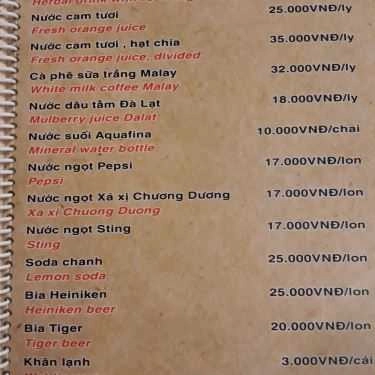 Herbal drink with
Nước cam tươi 25.000VNĐ/ly
Fresh orange juice
Nước cam tươi , hạt chia 35.000VNĐ/ly
Fresh orange juice, divided
Cà phê sữa trắng Malay 32.000VNĐ/ly
White milk coffee Malay
Nước dâu tằm Đà Lạt 18.000VNĐ/ly
Mulberry juice Dalat
Nước suối Aquafina 10.000VNĐ/chai
Mineral water bottle
Nước ngọt Pepsi 17.000VNĐ/lon
Pepsi
Nước ngọt Xá xị Chương Dương 17.000VNĐ/lon
Xa xi Chuong Duong
Nước ngọt Sting 17.000VNĐ/lon
Sting
Soda chanh 25.000VNĐ/lon
Lemon soda
Bia Heiniken 25.000VNĐ/lon
Heiniken beer
Bia Tiger 20.000VNĐ/lon
Tiger beer
Khăn lạnh 3.000VNĐ/cái